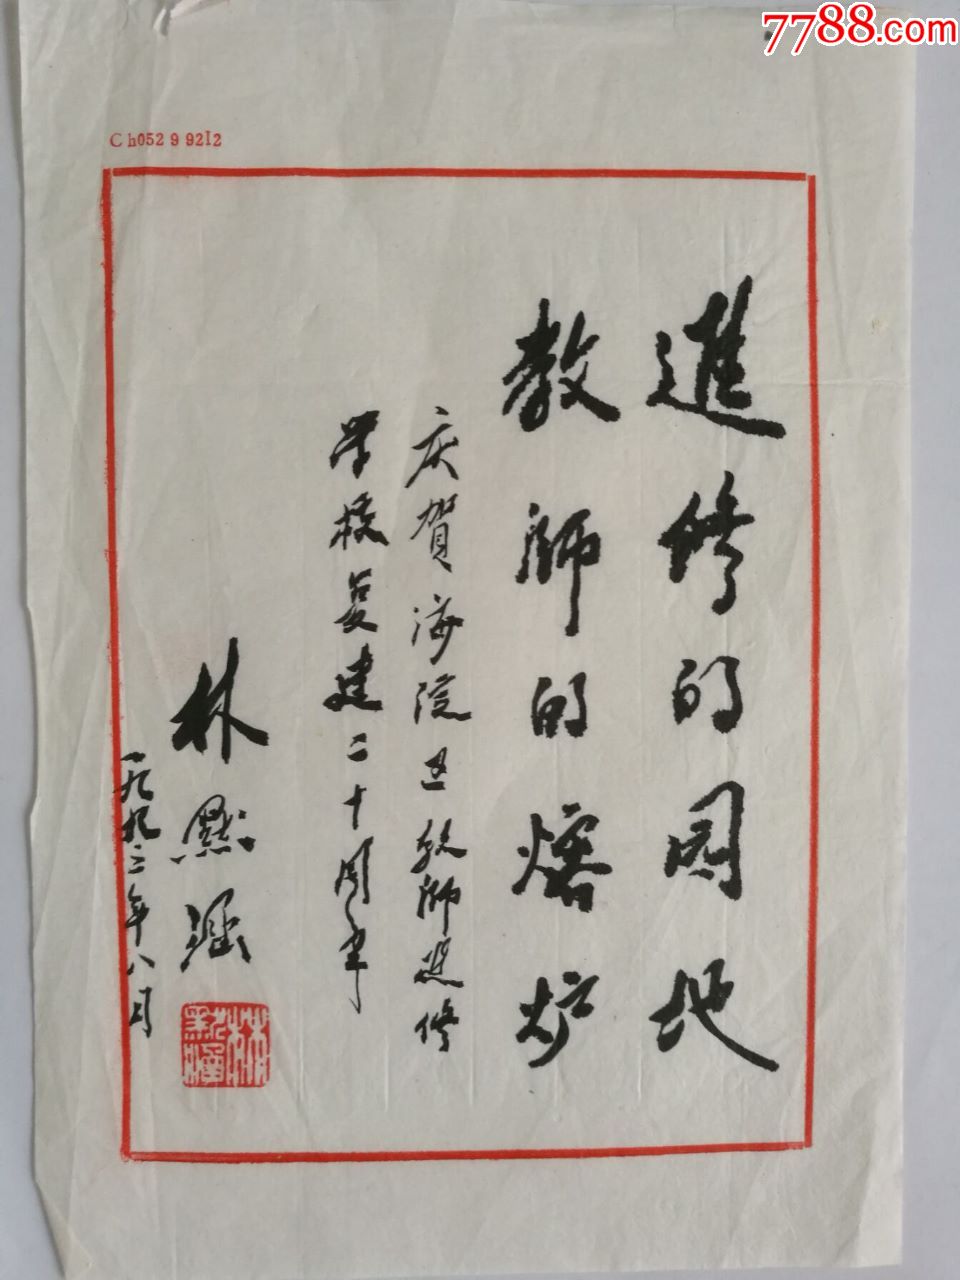 7788.com
C h052 9 92I2
進修的園地
教師的熔炉
庆賀海淀区教师進修
学校复建二十周年
林默涵
一九九二年八月
林
默涵